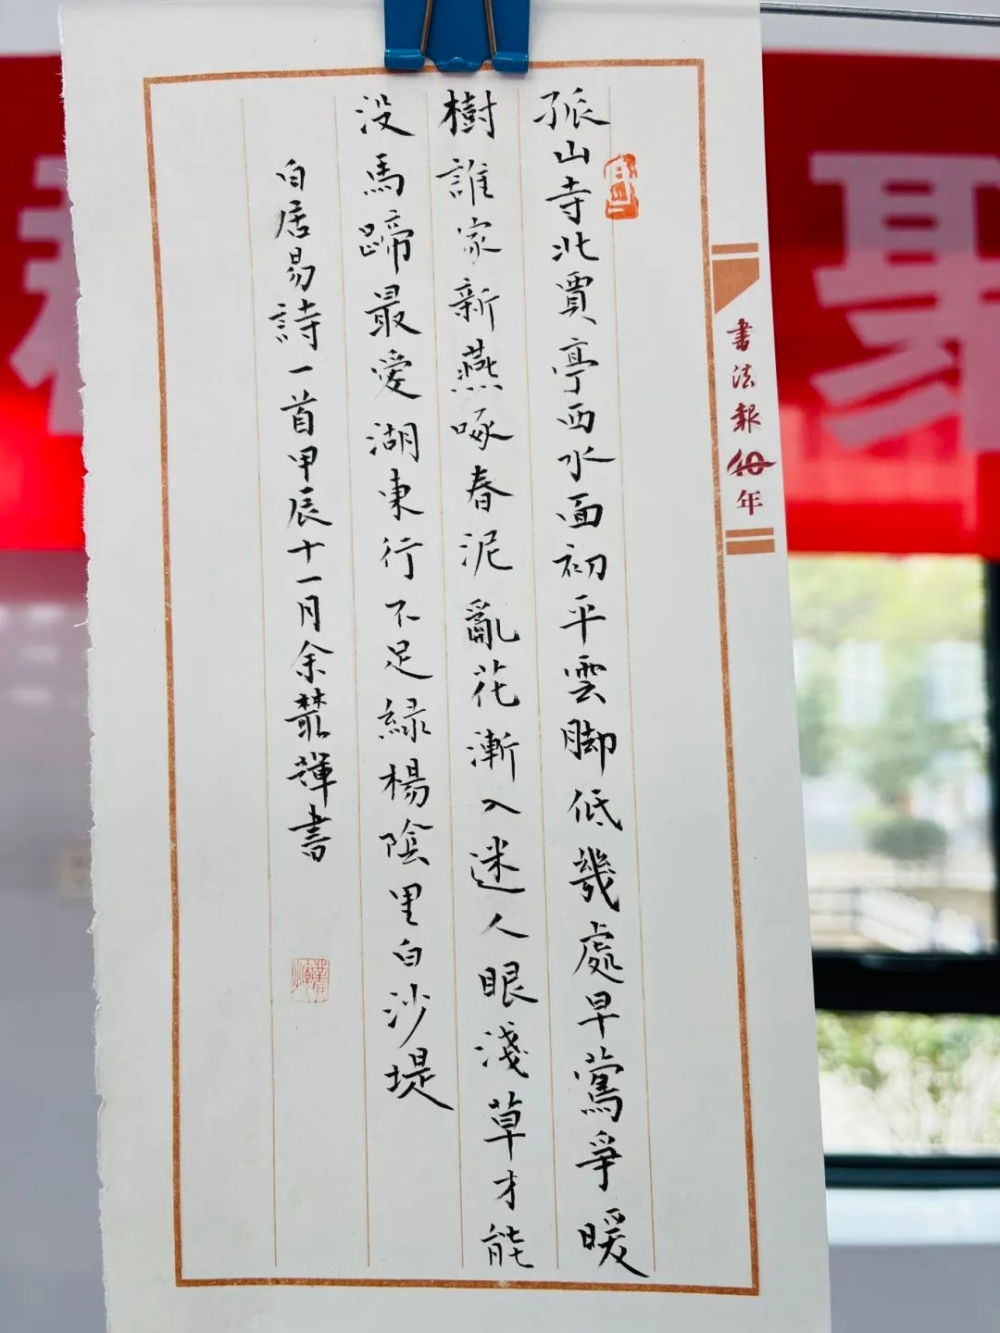 孤山寺北賈亭西水面初平雲脚低幾處早鶯爭暖
樹誰家新燕啄春泥亂花漸入迷人眼淺草才能
没馬蹄最愛湖東行不足緑楊陰里白沙堤
白居易詩一首甲辰十一月余叢輝書
書法報40年
聚